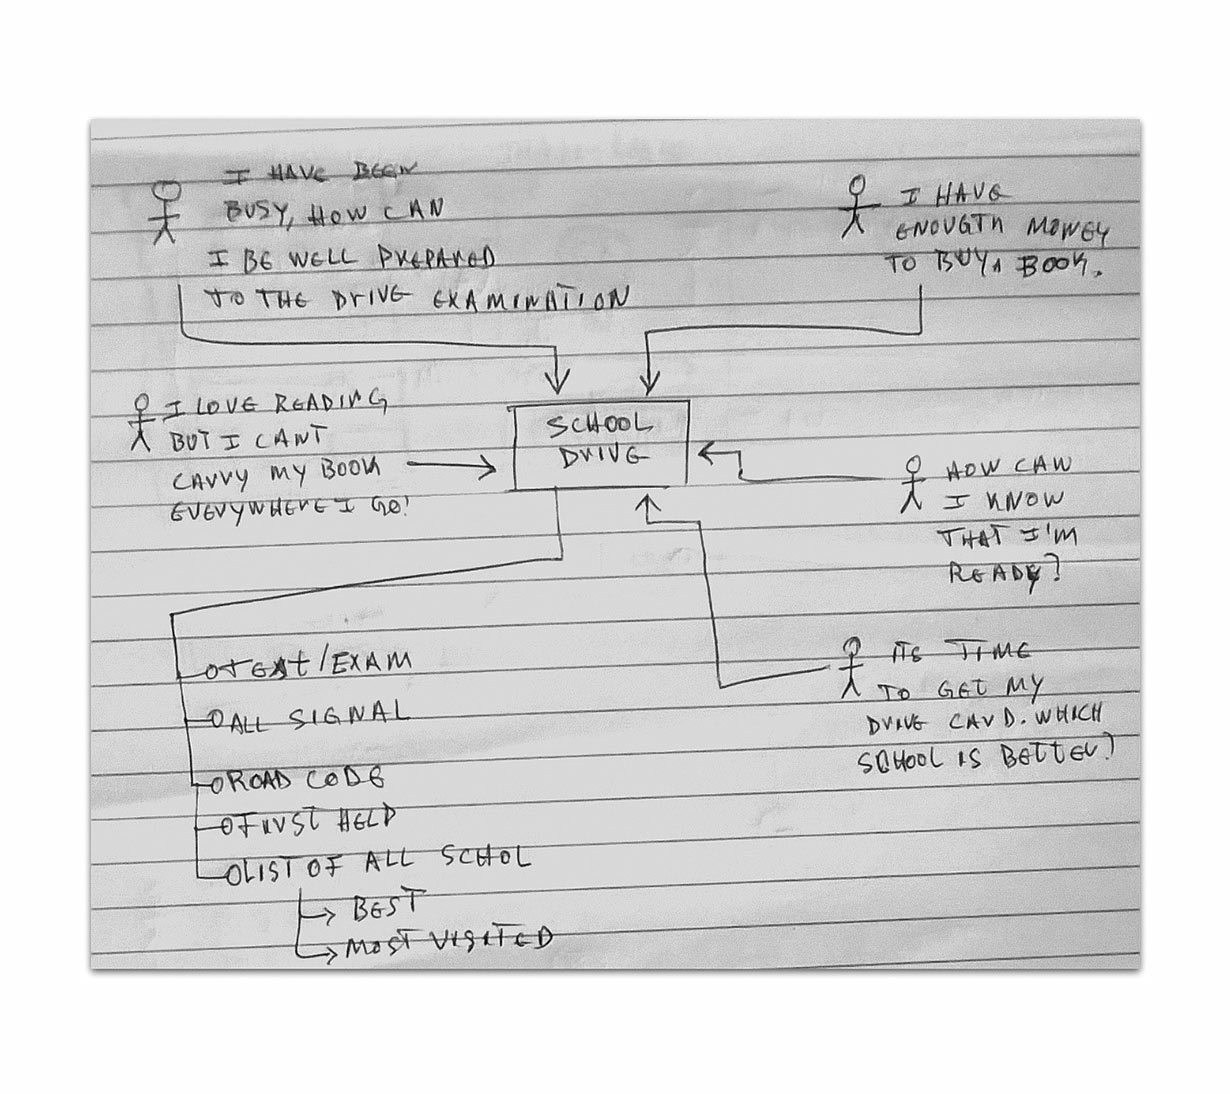 I HAVE BEEN
BUSY, HOW CAN
I BE WELL PREPARED
TO THE DRIVE EXAMINATION
I HAVE
ENOUGTH MONEY
TO BUY A BOOK.
I LOVE READING
BUT I CANT
CARRY MY BOOK
EVERYWHERE I GO!
SCHOOL
DRIVE
HOW CAN
I KNOW
THAT I'M
READY?
ITS TIME
TO GET MY
DRIVE CARD. WHICH
SCHOOL IS BETTER?
TEXT/EXAM
ALL SIGNAL
ROAD CODE
FIRST HELP
LIST OF ALL SCHOL
BEST
MOST VISITED